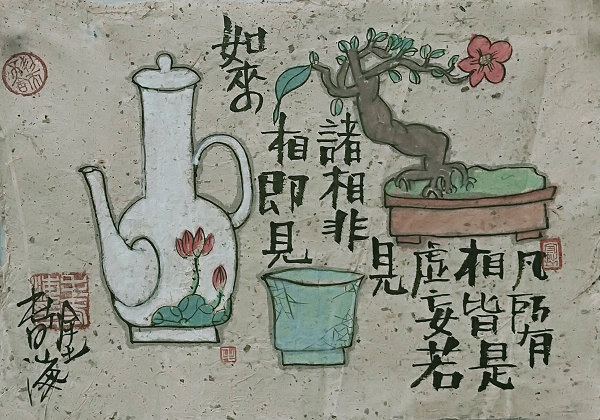 凡所有
相皆是
虛妄若
見
諸相非
相即見
如來